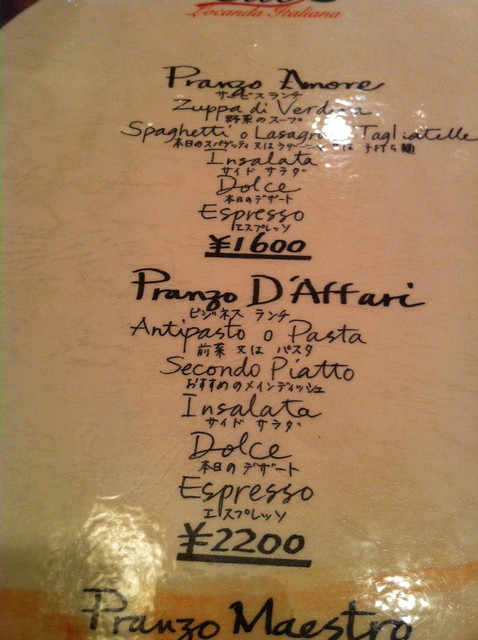 Locanda Italiana
Pranzo Amore
サービスランチ
Zuppa di Verdura
野菜のスープ
Spaghetti o Lasagna o Tagliatelle
本日のスパゲッティ又は 手打ち麺
Insalata
サイド サラダ
Dolce
本日のデザート
Espresso
エスプレッソ
¥1600
Pranzo D'Affari
ビジネス ランチ
Antipasto o Pasta
前菜 又は パスタ
Secondo Piatto
おすすめのメインディッシュ
Insalata
サイド サラダ
Dolce
本日の デザート
Espresso
エスプレッソ
¥2200
Pranzo Maestro